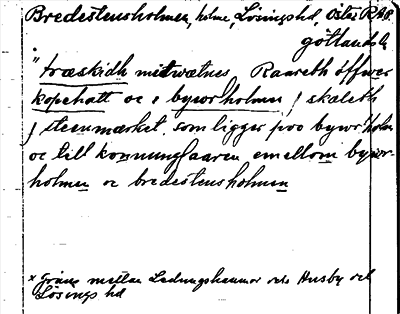 Bredestensholmen, holme, Lösings hd, Öster
götlands l.
" træskidh mitwætnes Raareth öffwer
kopehatt oc i byworholmen j skaleth
j steenmærket som ligger poo bywor holm
oc till konnungsaaren emellom bywor-
holmen oc bredestensholmen
x Gräns mellan Ledungshammar och Husby och
Lösings hd